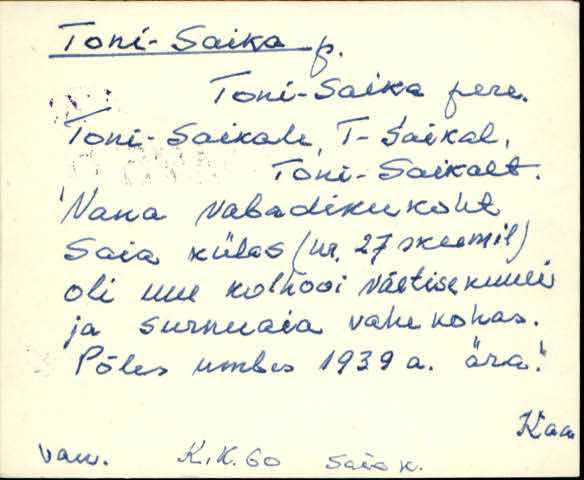 Toni-Saika p.
Toni-Saika pere.
Toni-Saikale, T-Saikal,
Toni-Saikalt.
"Vana vabadikukoht
Saia külas (nr. 27 skeemil)
oli uue kolhoosi
ja surnuaia vahekohas.
Põles umbes 1939 a. ära."
Kaa
van. K.K.60 Saia k.